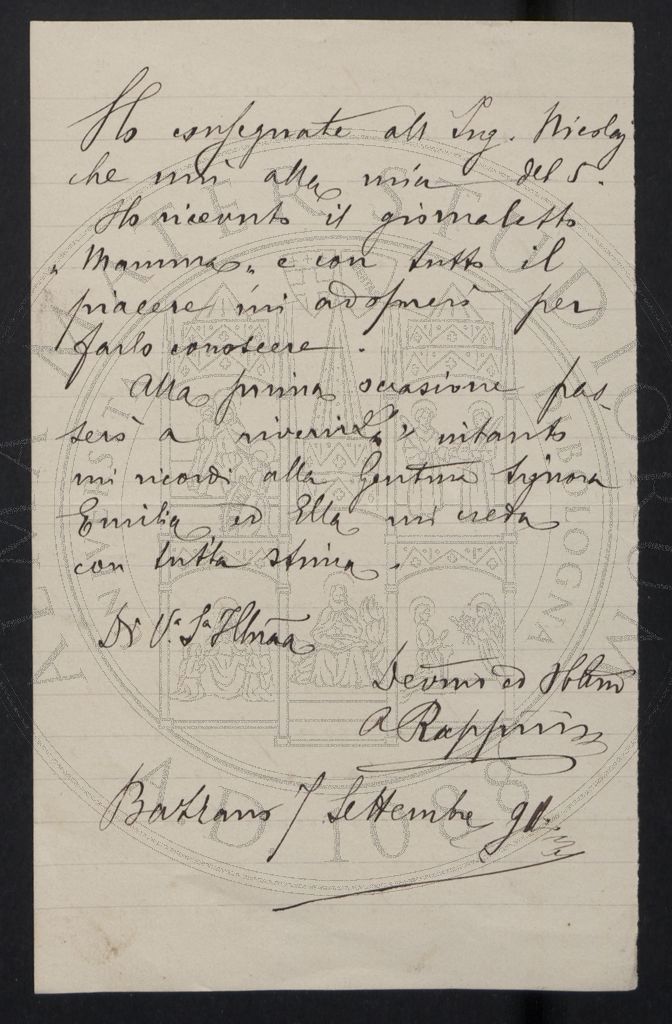 Ho consegnate all Ing. Nicolaj
che unì alla mia del 5.
Ho ricevuto il giornaletto
"Mamma" e con tutto il
piacere mi adoprerò per
farlo conoscere.
Alla prima occasione pas-
serò a riverirLa, intanto
mi ricordi alla Gentma Signora
Emilia ed Ella mi creda
con tutta stima.
Di V.a Sa Illma
Devmo ed Obbmo
A Rappini
Bazzano 7 Settembre 91.
ALMA MATER STUDIORUM
UNIVERSITÀ DI BOLOGNA
A.D. 1088